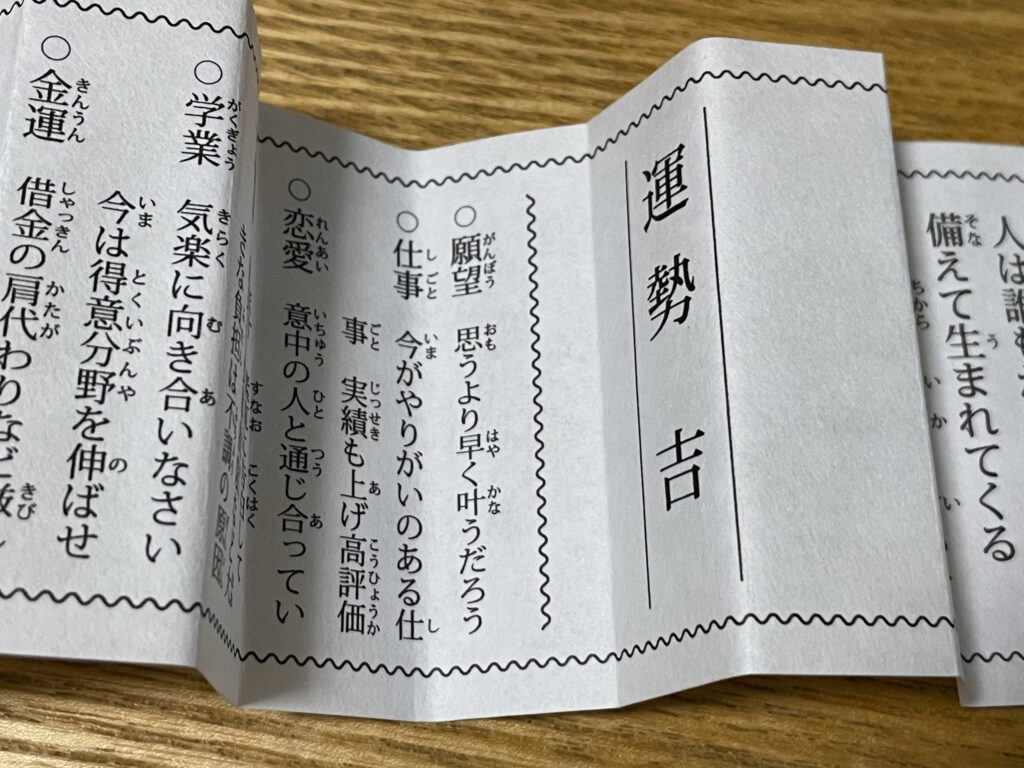 人は誰も
備えて生まれてくる
運勢 吉
○願望 思うより早く叶うだろう
○仕事 今がやりがいのある仕
事 実績も上げ高評価
○恋愛 意中の人と通じ合ってい
○学業 気楽に向き合いなさい
今は得意分野を伸ばせ
○金運 借金の肩代わりなど